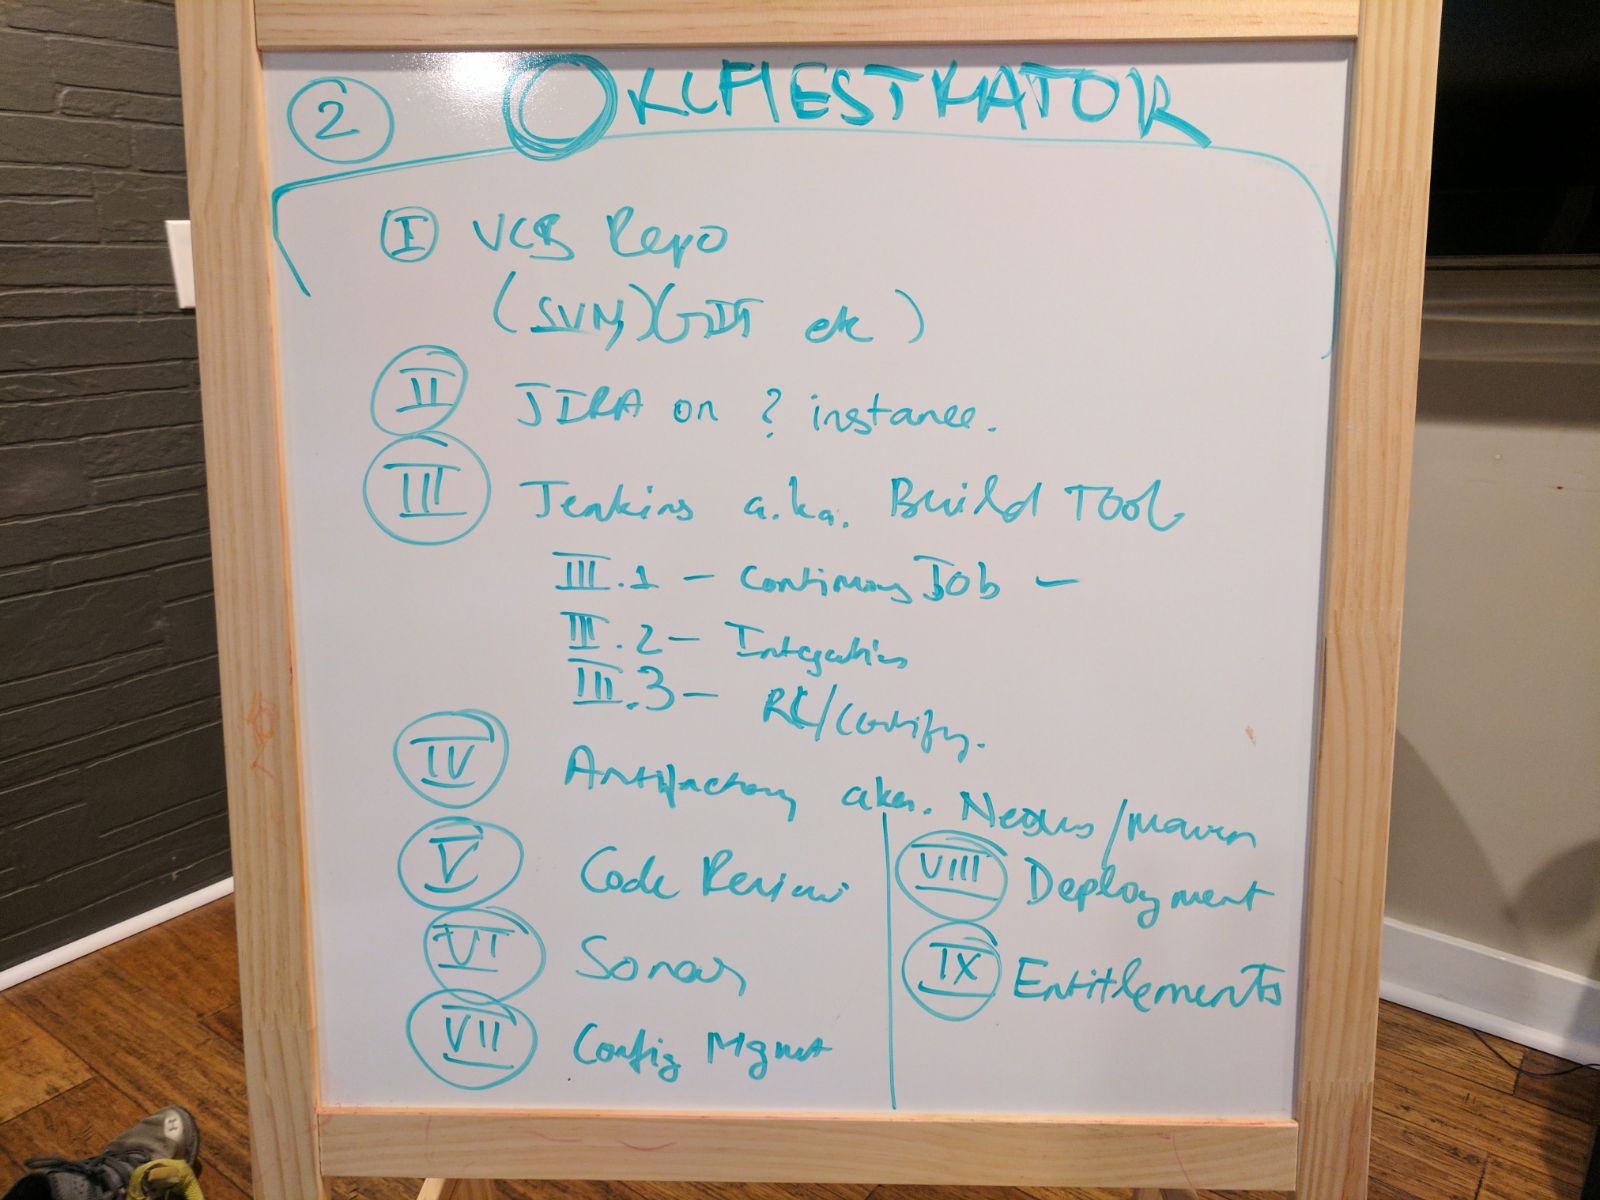 2 ORCHESTRATOR
I VCS Repo
(SVN)(GIT etc)
II JIRA on ? instance.
III Jenkins a.k.a. Build Tool
III.1 - Continuous Job -
III.2 - Integration
III.3 - RC/Certify.
IV Artifactory aka. Nexus/Maven
V Code Review
VI Sonar
VII Config Mgmt
VIII Deployment
IX Entitlements